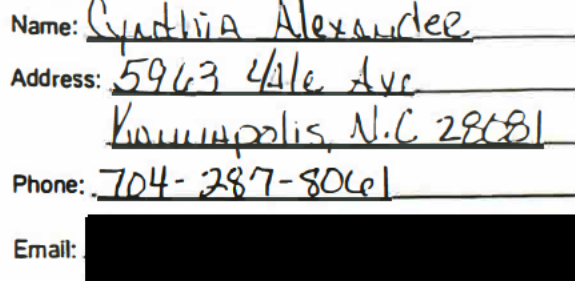 Name: Cynthia Alexander
Address: 5963 Yale Ave
Kannapolis, N.C 28081
Phone: 704-287-8061
Email: